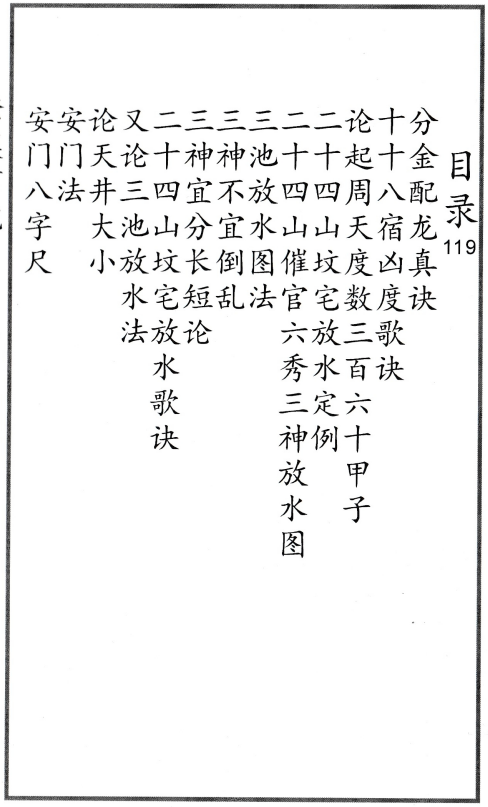 目录
119
分金配龙真诀
十十八宿凶度歌诀
论起周天度数三百六十甲子
二十四山坟宅放水定例
二十四山催官六秀三神放水图
三池放水图法
三神不宜倒乱
三神宜分长短论
二十四山坟宅放水歌诀
又论三池放水法
论天井大小
安门法
安门八字尺